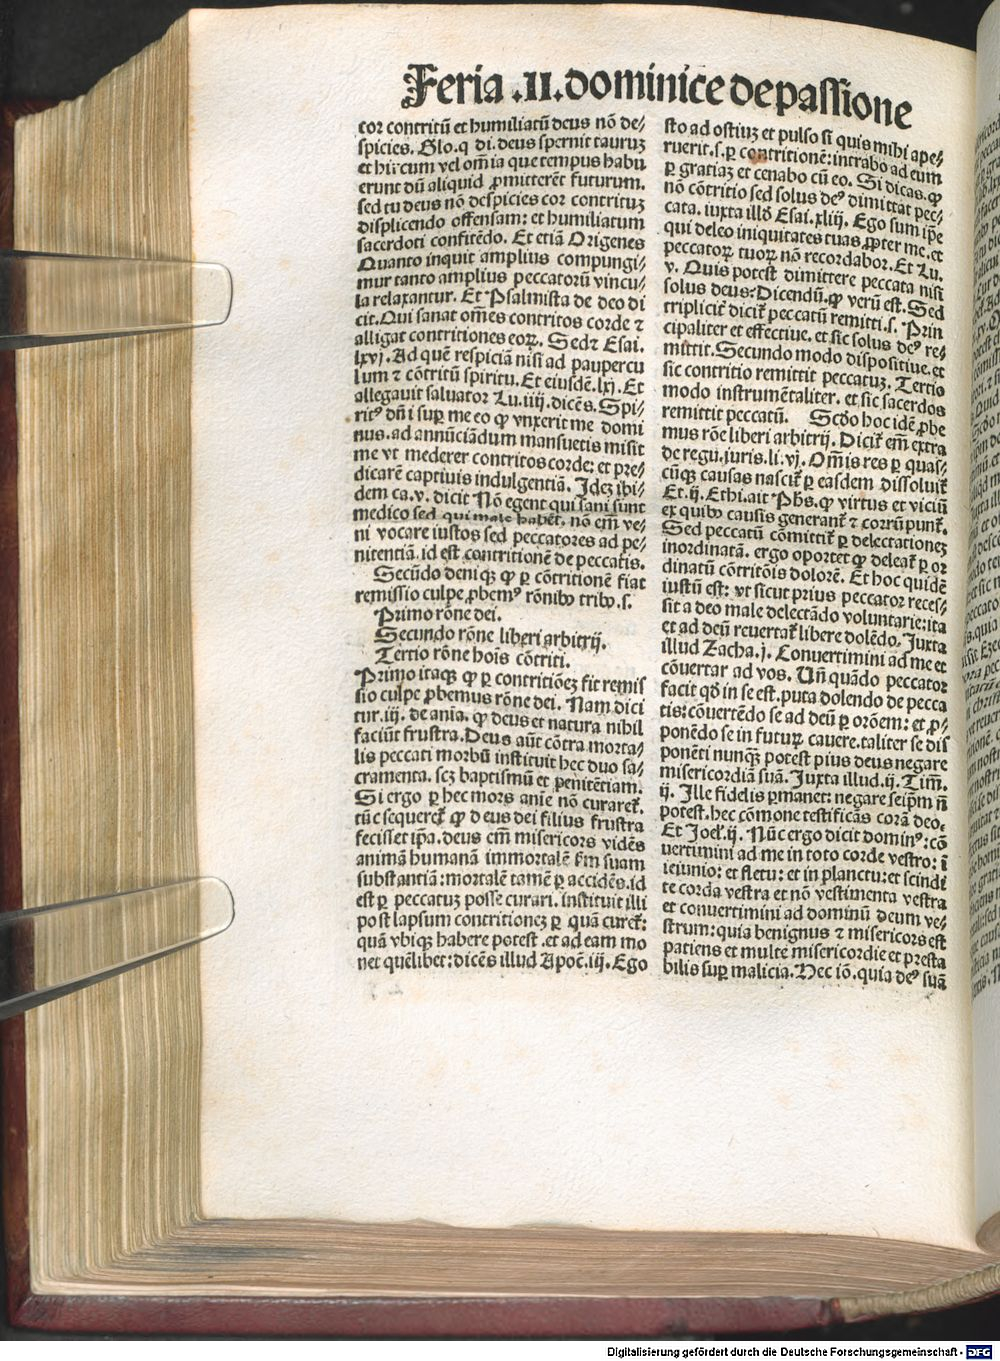 Feria .II. dominice de passione
cor contritū et humiliatū deus nō de/
spicies. Glo.q di. deus spernit tauruꝫ
et hircum vel om̄ia que tempus habu
erunt dū aliquid ꝓmitterēt futurum.
sed tu deus nō despicies cor contrituꝫ
displicendo offensam: et humiliatum
sacerdoti confitēdo. Et etiā Origenes
Quanto inquit amplius compungi/
mur tanto amplius peccatorū vincu/
la relaxantur. Et Psalmista de deo di
cit. Qui sanat om̄es contritos corde ⁊
alligat contritiones eoꝝ. Sedꝫ Esai.
lxvj. Ad quē respiciā nisi ad paupercu
lum ⁊ cōtritū spiritu. Et eiusdē.lxj. Et
allegauit saluator Lu.iiij.dicēs. Spi/
ritꝰ dn̄i suꝑ me eo ꝙ vnxerit me domi
nus.ad annūciādum mansuetis misit
me vt mederer contritos corde: et pre/
dicarē captiuis indulgentiā. Idē ibi/
dem ca.v. dicit Nō egent qui sani sunt
medico sed qui male habēt. nō em̄ ve/
ni vocare iustos sed peccatores ad pe/
nitentiā.id est contritionē de peccatis.
Secūdo deniqꝫ ꝙ ꝑ cōtritionē fiat
remissio culpe ꝓbemꝰ rōnibꝰ tribꝰ.s.
Primo rōne dei.
Secundo rōne liberi arbitrij.
Tertio rōne hois cōtriti.
Primo itaqꝫ ꝙ ꝑ contritionēꝫ fit remis
sio culpe ꝓbemus rōne dei. Nam dici
tur.iij. de aīa. ꝙ deus et natura nihil
faciūt frustra. Deus aūt cōtra morta/
lis peccati morbū instituit hec duo sa/
cramenta. scꝫ baptismū et penitētiam.
Si ergo ꝑ hec mors anīe nō curaret̄.
tūc sequeret̄ ꝙ deus dei filius frustra
fecisset ip̄a.deus em̄ misericors vidēs
animā humanā immortalē s̄m suam
substantiā: mortalē tamē ꝑ accidēs.id
est ꝑ peccatuꝫ posse curari. instituit illi
post lapsum contritionēꝫ ꝑ quā curet̄:
quā vbiqꝫ habere potest .et ad eam mo
net quēlibet: dicēs illud Apoc̄.iij. Ego
sto ad ostiuꝫ et pulso si quis mihi ape/
ruerit.s.ꝑ contritionē: intrabo ad eum
ꝑ gratiaꝫ et cenabo cū eo. Si dicas. ꝙ
nō cōtritio sed solus deꝰ dimittat pec/
cata. iuxta illd̄ Esai.xliij. Ego sum ip̄e
qui deleo iniquitates tuas ꝓpter me. et
peccatoꝝ tuoꝝ nō recordabor. Et Lu.
v. Quis potest dimittere peccata nisi
solus deus: Dicendū. ꝙ verū est. Sed
triplicit̄ dicit̄ peccatū remitti.s. Prin
cipaliter et effectiue. et sic solus deꝰ re/
mittit. Secundo modo dispositiue. et
sic contritio remittit peccatuꝫ. Tertio
modo instrumētaliter. et sic sacerdos
remittit peccatū. Scd̄o hoc idē ꝓbe
mus rōne liberi arbitrij. Dicit̄ em̄ extra
de regu.iuris.li.vj. Om̄is res ꝑ quas/
cūqꝫ causas nascit̄ ꝑ easdem dissoluit̄
Et.ij. Ethi.ait Ph̄s. ꝙ virtus et viciū
ex quibꝰ causis generant̄ ⁊ corrūpunt̄.
Sed peccatū cōmittit̄ ꝑ delectationēꝫ
inordinatā. ergo oportet ꝙ deleat̄ ꝑ or
dinatū cōtritōis dolorē. Et hoc quidē
iustū est: vt sicut prius peccator reces/
sit a deo male delectādo voluntarie: ita
et ad deū reuertat̄ libere dolēdo. Juxta
illud Zacha.j. Conuertimini ad me et
cōuertar ad vos. Un̄ quādo peccator
facit qd̄ in se est.puta dolendo de pecca
tis: cōuertēdo se ad deū ꝑ orōem: et ꝓ/
ponēdo se in futuꝝ cauere. taliter se dis
ponēti nunqꝫ potest pius deus negare
misericordiā suā. Juxta illud.ij. Tim̄.
ij. Ille fidelis ꝑmanet: negare seip̄m n̄
potest. hec cōmone testificās corā deo.
Et Joel̄.ij. Nūc ergo dicit dominꝰ: cō
uertimini ad me in toto corde vestro: ī
ieiunio: et fletu: et in planctu: et scindi
te corda vestra et nō vestimenta vestra
et conuertimini ad dominū deum ve/
strum: quia benignus ⁊ misericors est
patiens et multe misericordie et presta
bilis suꝑ malicia. Hec iō. quia deꝰ suā
Digitalisierung gefördert durch die Deutsche Forschungsgemeinschaft - DFG